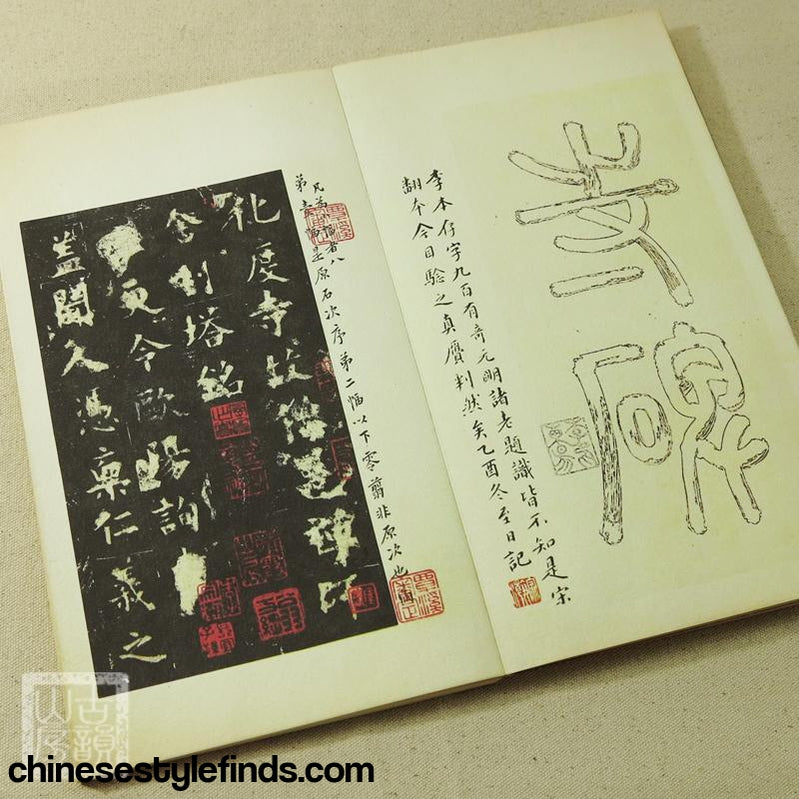 寺碑
李本存字九百有奇元明諸老題識皆不知是宋
翻本今目驗之真贋判然矣乙酉冬至日記
幅者八
第幅是原石次序第二幅以下零翦非原次也
化度寺故僧邕禪師
舍利塔銘
更令歐陽詢
蓋聞人憑稟仁義之
古韻山房
chinesestylefinds.com